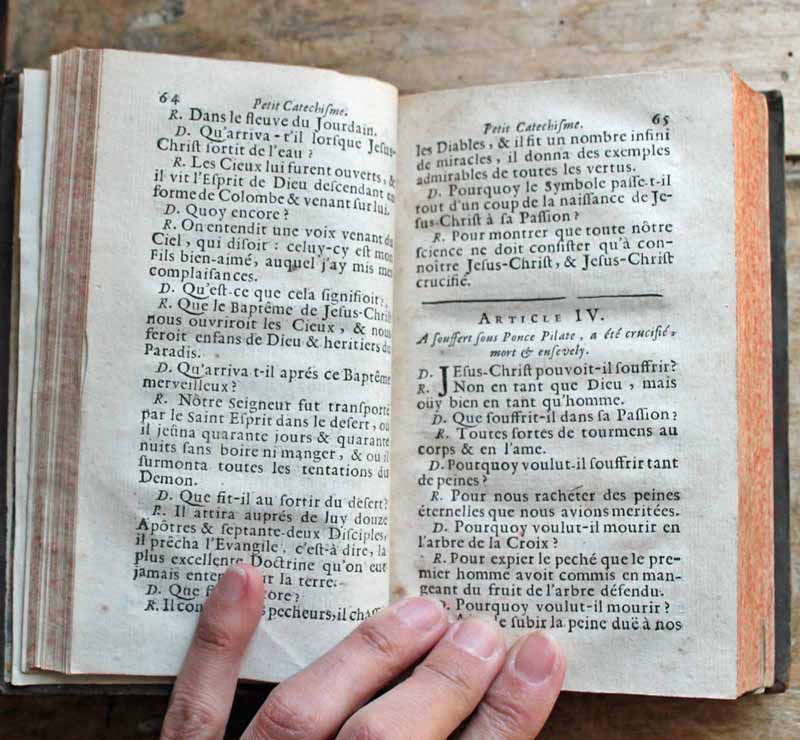 64
Petit Catechiſme.
R. Dans le fleuve du Jourdain.
D. Qu'arriva-t'il lorſque Jeſus-
Chriſt ſortit de l'eau ?
R. Les Cieux lui furent ouverts, &
il vit l'Eſprit de Dieu deſcendant en
forme de Colombe & venant ſur lui.
D. Quoy encore ?
R. On entendit une voix venant du
Ciel, qui diſoit : celuy-cy est mon
Fils bien-aimé, auquel j'ay mis mes
complaiſances.
D. Qu'eſt-ce que cela ſignifioit ?
R. Que le Baptême de Jeſus-Chriſt
nous ouvriroit les Cieux, & nous
feroit enfans de Dieu & heritiers du
Paradis.
D. Qu'arriva t-il aprés ce Baptême
merveilleux ?
R. Nôtre Seigneur fut tranſporté
par le Saint Eſprit dans le deſert, où
il jeûna quarante jours & quarante
nuits ſans boire ni manger, & où il
ſurmonta toutes les tentations du
Demon.
D. Que fit-il au ſortir du deſert ?
R. Il attira auprés de luy douze
Apôtres & ſeptante-deux Diſciples,
il prêcha l'Evangile, c'eſt-à dire, la
plus excellente Doctrine qu'on eut
jamais ſur la terre.
D. Que
R. Il pecheurs, il chaſſ
Petit Catechiſme.
65
les Diables, & il fit un nombre infini
de miracles, il donna des exemples
admirables de toutes les vertus.
D. Pourquoy le Symbole paſſe-t-il
tout d'un coup de la naiſſance de Je-
ſus-Chriſt à ſa Paſſion ?
R. Pour montrer que toute nôtre
ſcience ne doit conſiſter qu'à con-
noître Jeſus-Chriſt, & Jeſus-Chriſt
crucifié.
ARTICLE IV.
A ſouffert ſous Ponce Pilate, a été crucifié,
mort & enſevely.
D. JEſus-Chriſt pouvoit-il ſouffrir?
R. Non en tant que Dieu, mais
oüy bien en tant qu'homme.
D. Que ſouffrit-il dans ſa Paſſion ?
R. Toutes ſortes de tourmens au
corps & en l'ame.
D. Pourquoy voulut-il ſouffrir tant
de peines ?
R. Pour nous racheter des peines
éternelles que nous avions meritées.
D. Pourquoy voulut-il mourir en
l'arbre de la Croix ?
R. Pour expier le peché que le pre-
mier homme avoit commis en man-
geant du fruit de l'arbre défendu.
D. Pourquoy voulut-il mourir ?
de ſubir la peine duë à nos